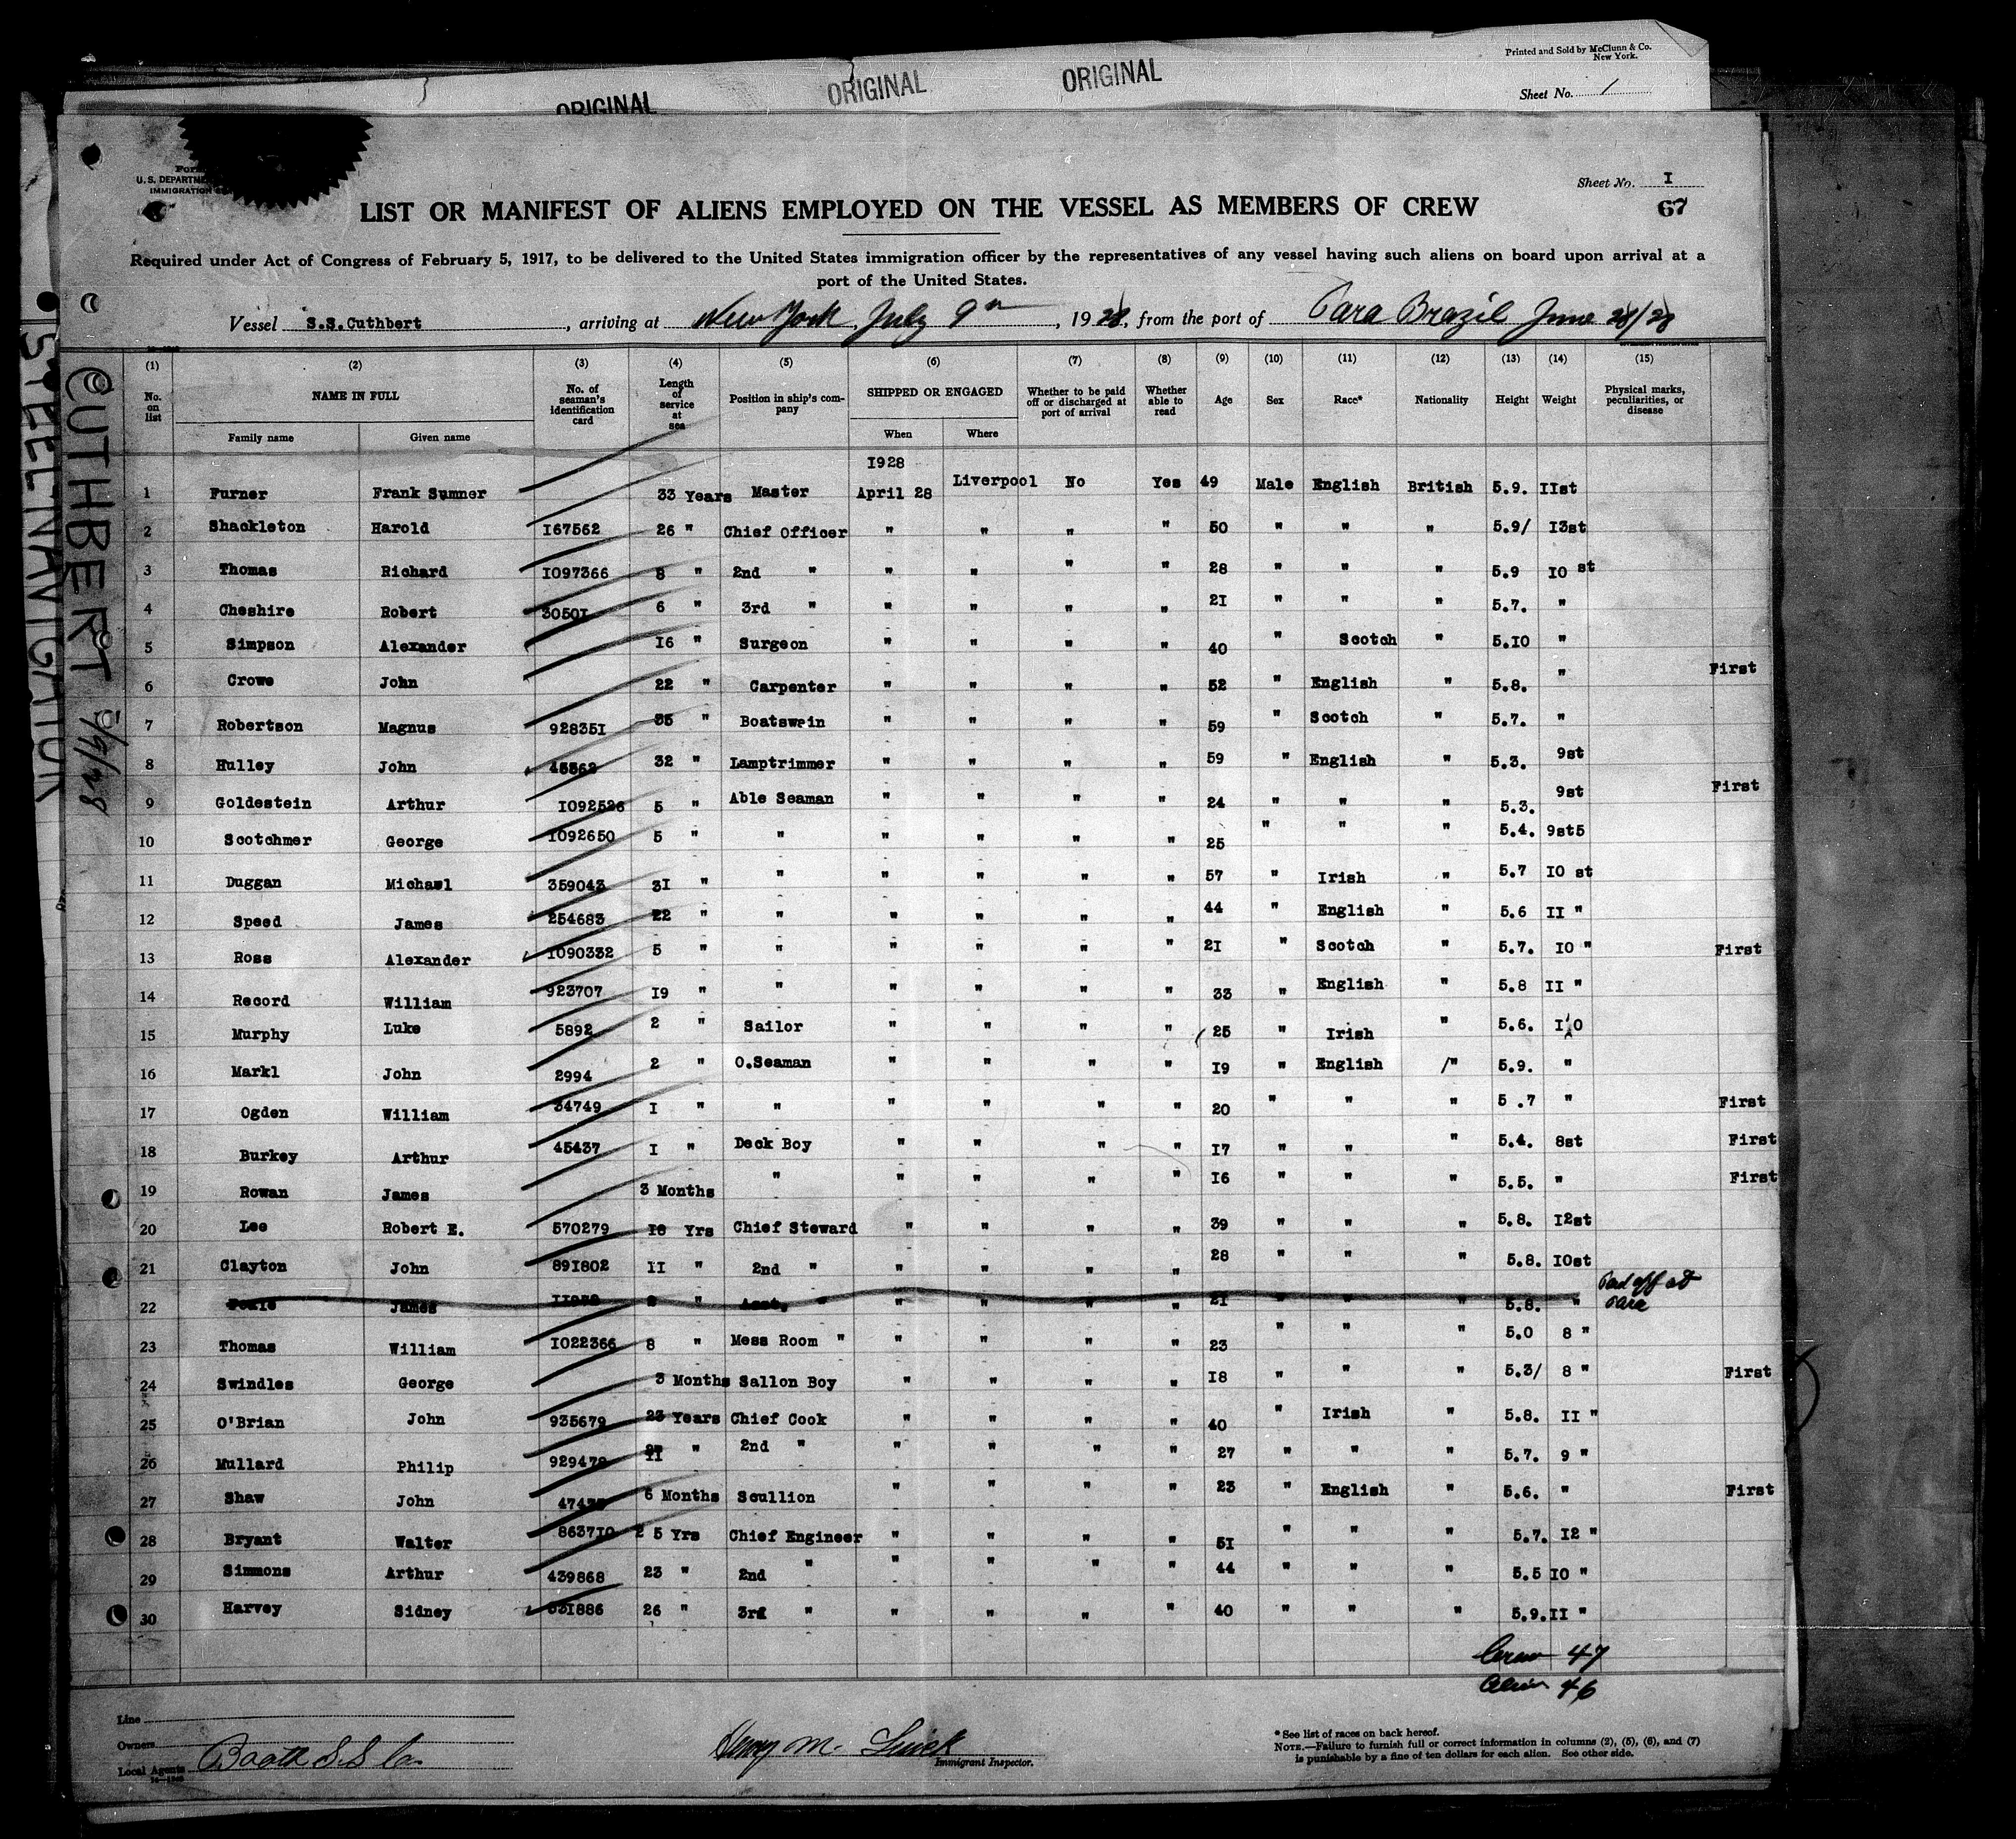 Printed and Sold by McClunn & Co.
New York.
ORIGINAL ORIGINAL ORIGINAL
Sheet No. 1
U. S. DEPARTM
IMMIGRATION
Sheet No. I
67
LIST OR MANIFEST OF ALIENS EMPLOYED ON THE VESSEL AS MEMBERS OF CREW
Required under Act of Congress of February 5, 1917, to be delivered to the United States immigration officer by the representatives of any vessel having such aliens on board upon arrival at a
port of the United States.
Vessel S.S.Cuthbert, arriving at New York, July 9th, 1928, from the port of Para Brazil June 28/28
STEEL NAVIGATOR
CUTHBERT 7/9/28
(1) (2) (3) (4) (5) (6) (7) (8) (9) (10) (11) (12) (13) (14) (15)
No. on list NAME IN FULL No. of seaman's identification card Length of service at sea Position in ship's company SHIPPED OR ENGAGED Whether to be paid off or discharged at port of arrival Whether able to read Age Sex Race* Nationality Height Weight Physical marks, peculiarities, or disease
Family name Given name When Where
1928
1 Furner Frank Sumner 33 Years Master April 28 Liverpool No Yes 49 Male English British 5.9. IIst
2 Shackleton Harold I67562 26 " Chief Officer " " " " 50 " " " 5.9/ I3st
3 Thomas Richard I097366 8 " 2nd " " " " " 28 " " " 5.9 I0 st
4 Cheshire Robert 3050I 6 " 3rd " " " " " 2I " " " 5.7. "
5 Simpson Alexander I6 " Surgeon " " " " 40 " Scotch " 5.I0 "
6 Crowe John 22 " Carpenter " " " " 52 " English " 5.8. " First
7 Robertson Magnus 92835I 35 " Boatswain " " " " 59 " Scotch " 5.7. "
8 Hulley John 45562 32 " Lamptrimmer " " " " 59 " English " 5.3. 9st
9 Goldestein Arthur I092526 5 " Able Seaman " " " " 24 " " " 5.3. 9st First
10 Scotchmer George I092650 5 " " " " " " 25 " " " 5.4. 9st5
11 Duggan Michael 359043 3I " " " " " " 57 " Irish " 5.7 I0 st
12 Speed James 254683 22 " " " " " " 44 " English " 5.6 II "
13 Ross Alexander I090332 5 " " " " " " 2I " Scotch " 5.7. I0 " First
14 Record William 923707 I9 " " " " " " 33 " English " 5.8 II "
15 Murphy Luke 5892 2 " Sailor " " " " 25 " Irish " 5.6. I0
16 Markl John 2994 2 " O.Seaman " " " " I9 " English " 5.9. "
17 Ogden William 34749 I " " " " " " 20 " " " 5 .7 " First
18 Burkey Arthur 45437 I " Deck Boy " " " " I7 " " " 5.4. 8st First
19 Rowan James 3 Months " " " " " I6 " " " 5.5. " First
20 Lee Robert E. 570279 I8 Yrs Chief Steward " " " " 39 " " " 5.8. I2st
21 Clayton John 89I802 II " 2nd " " " " " 28 " " " 5.8. I0st
22 James " Asst. " " " " " 2I " " " 5.8. " Paid off at
Para
23 Thomas William I022366 8 " Mess Room " " " " " 23 " " " 5.0 8 "
24 Swindles George 3 Months Sallon Boy " " " " I8 " " " 5.3/ 8 " First
25 O'Brian John 935679 23 Years Chief Cook " " " " 40 " Irish " 5.8. II "
26 Mullard Philip II " 2nd " " " " " 27 " " " 5.7. 9 "
27 Shaw John 6 Months Scullion " " " " 23 " English " 5.6. " First
28 Bryant Walter 8637I0 2 5 Yrs Chief Engineer " " " " 5I " " " 5.7. I2 "
29 Simmons Arthur 439868 23 " 2nd " " " " " 44 " " " 5.5 I0 "
30 Harvey Sidney 26 " 3rd " " " " " 40 " " " 5.9. II "
Crew 47
Alien 46
Line
Owners
Local Agents Booth S.S. Co.
Immigrant Inspector.
* See list of races on back hereof.
NOTE.—Failure to furnish full or correct information in columns (2), (5), (6), and (7)
is punishable by a fine of ten dollars for each alien. See other side.